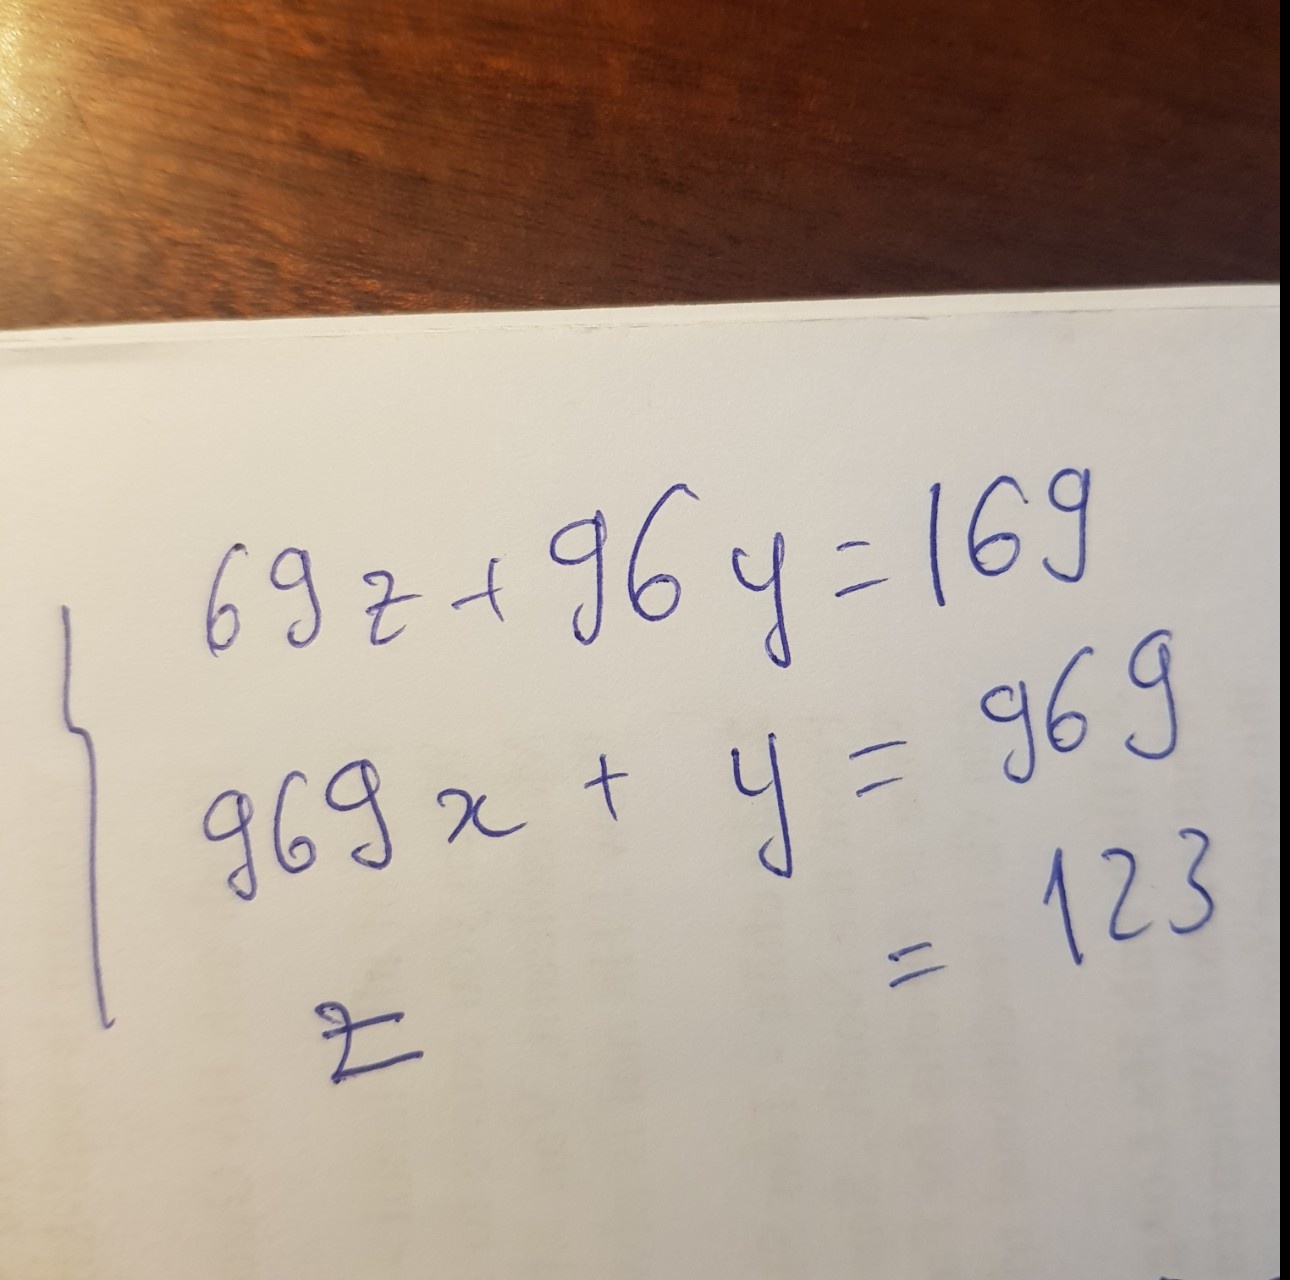 69z+96y=169
969x + y = 969
z = 123